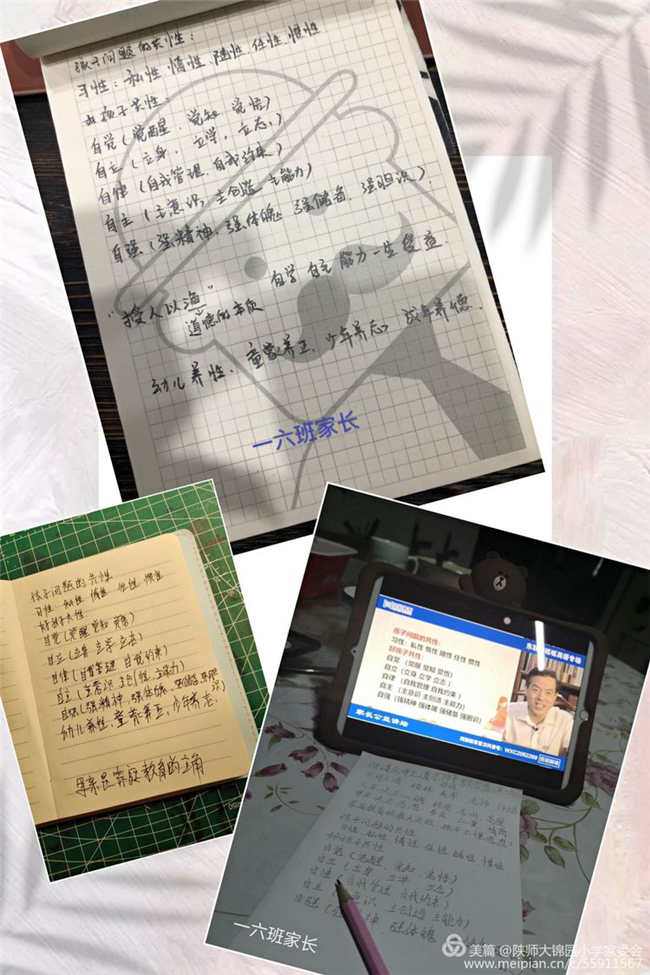 孩子问题的共性:
习性: 私性 惰性 随性 任性 惯性
好孩子共性:
自觉(觉醒、觉知、觉悟)
自立(立身,立学,立志,)
自律(自我管理、自我约束)
自主(主意识,主创造 主能力)
自强(强精神,强体魄 强储备,强胆识).
"授人以渔" 自学 自主 能力一生受益.
道德的本质
幼儿养性,童蒙养正,少年养志 成年养德.
一六班家长
孩子问题的共性
习性 私性 惰性 任性 惯性
好孩子共性
自觉(觉醒 觉知 觉悟)
自立(立身 立学 立志)
自律(自我管理 自我约束)
自主(主意识 主创造 主能力)
自强(强精神,强体魄,强储备 强胆识)
幼儿养性,童蒙养正,少年养志.
母亲是家庭教育的主角
家长公益讲坛
孩子问题的共性:
习性: 私性 惰性 随性 任性 惯性
好孩子共性:
自觉 (觉醒 觉知 觉悟)
自立 (立身 立学 立志)
自律 (自我管理 自我约束)
自主 (主意识 主创造 主能力)
自强 (强精神 强体魄 强储备 强胆识)
孩子问题的共性
习性 私性 惰性 任性 随性 惯性
好孩子共性
自觉(觉醒 觉知 觉悟)
自立(立身 立学 立志)
自律(自我管理 自我约束)
自主 主意识 主创造 主能力)
自强 强体魄
一六班家长
美篇 @陕师大锦园小学家委会
www.meipian.cn/c/55911567